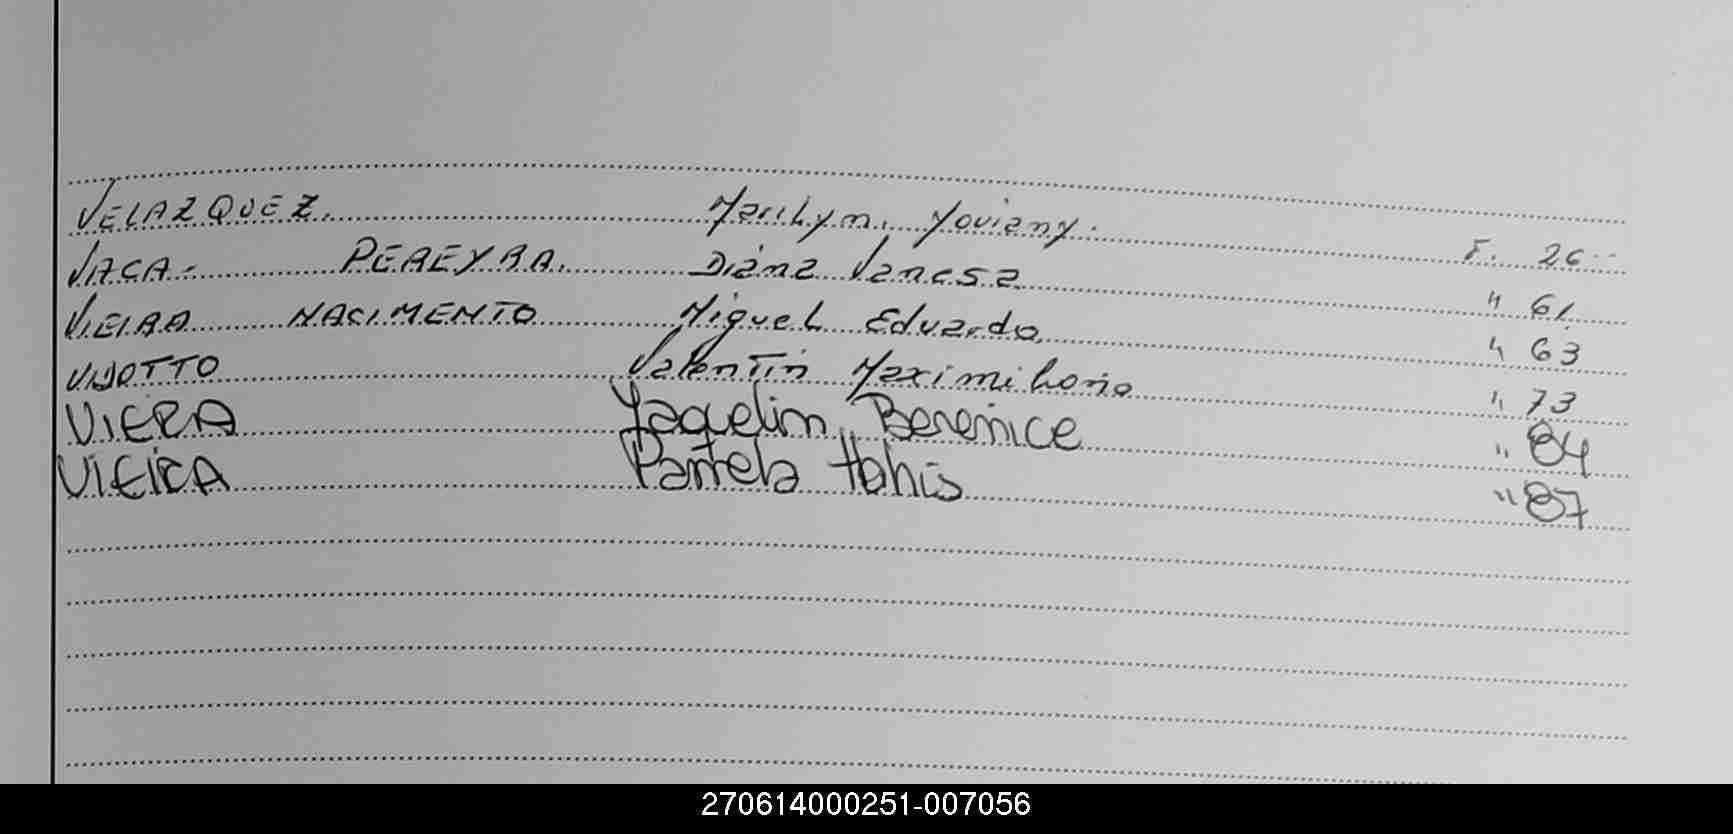 VELAZQUEZ. Marilym. Yoviany. F. 26
VACA. PEREYRA. Diana Vanesa " 61
VIEIRA NACIMENTO Miguel Eduardo " 63
VIJOTTO Valentin Maximiliano " 73
VIERA Yaquelim Berenice " 84
VIEIRA Pamela " 87
270614000251-007056